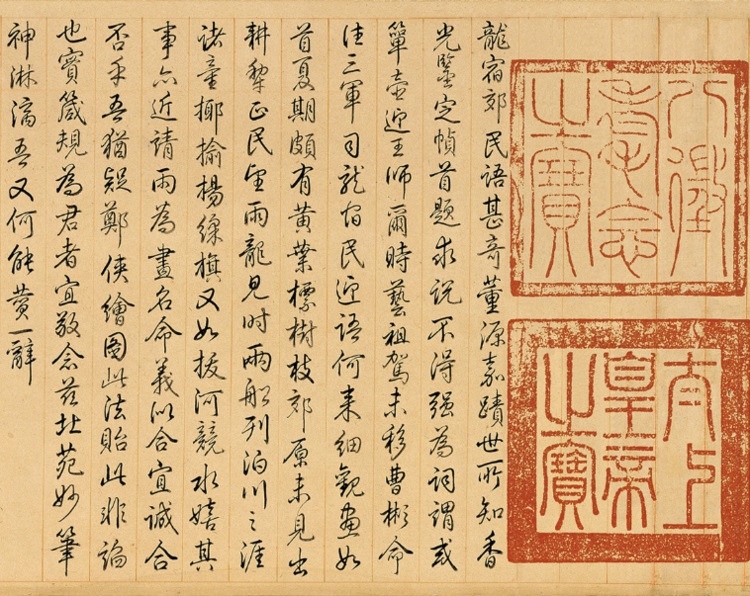 八徵
耄念
之寶
太上
皇帝
之寶
龍宿郊民語甚奇董源嘉蹟世所知香
光鑒定幀首題求説不得强為詞謂或
簞壺迎王師爾時藝祖駕未移曹彬命
往三軍司龍宿民迎語何来細觀畫如
首夏期頗有黄葉標樹枝郊原未見出
耕犂正民望雨龍見時兩船列泊川之涯
諸童揶揄揚綵旗又如拔河競水嬉其
事亦近請雨為畫名命義以合宜誠合
否乎吾猶疑鄭俠繪圖此法貽此非論
也實箴規為君者宜敬念茲北苑妙筆
神淋漓吾又何能贊一辭